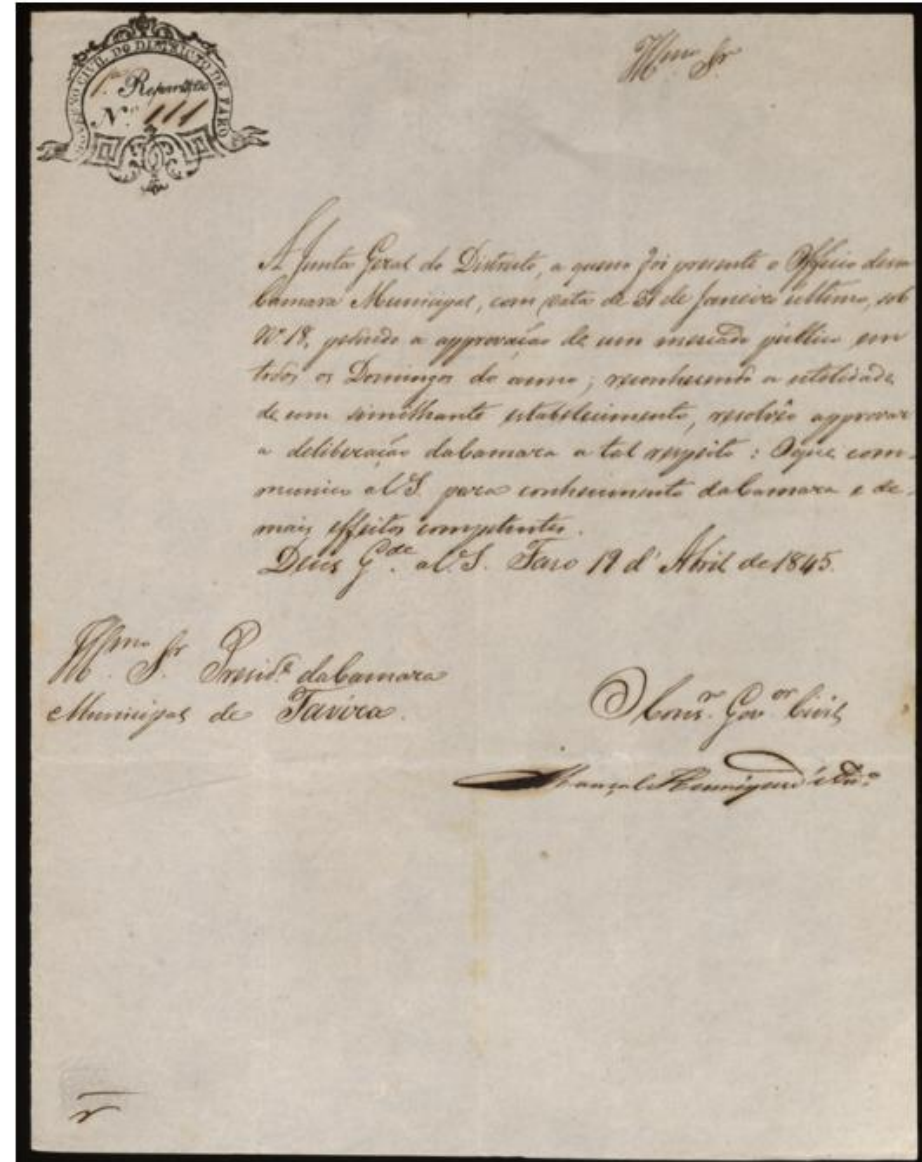 GOVERNO CIVIL DO DISTRICTO DE FARO
1.ª Repartição
N.º 111
Illmo. Sr.
A Junta Geral do Districto, a quem foi presente o Officio dessa
Camara Municipal, com data de 31 de Janeiro ultimo, sob
Nº 18, pedindo a approvação de um mercado publico em
todos os Domingos do anno; reconhecendo a utilidade
de um similhante estabelecimento, resolvêo approvar
a deliberação da Camara a tal respeito: O que com-
munico a V. S. para conhecimento da Camara e de-
mais effeitos competentes.
Deus G.de a V. S. Faro 19 d'Abril de 1845.
Illmo. Sr. Presid.e da Camara
Municipal de Tavira.
O Cons.r Gov.or Civil